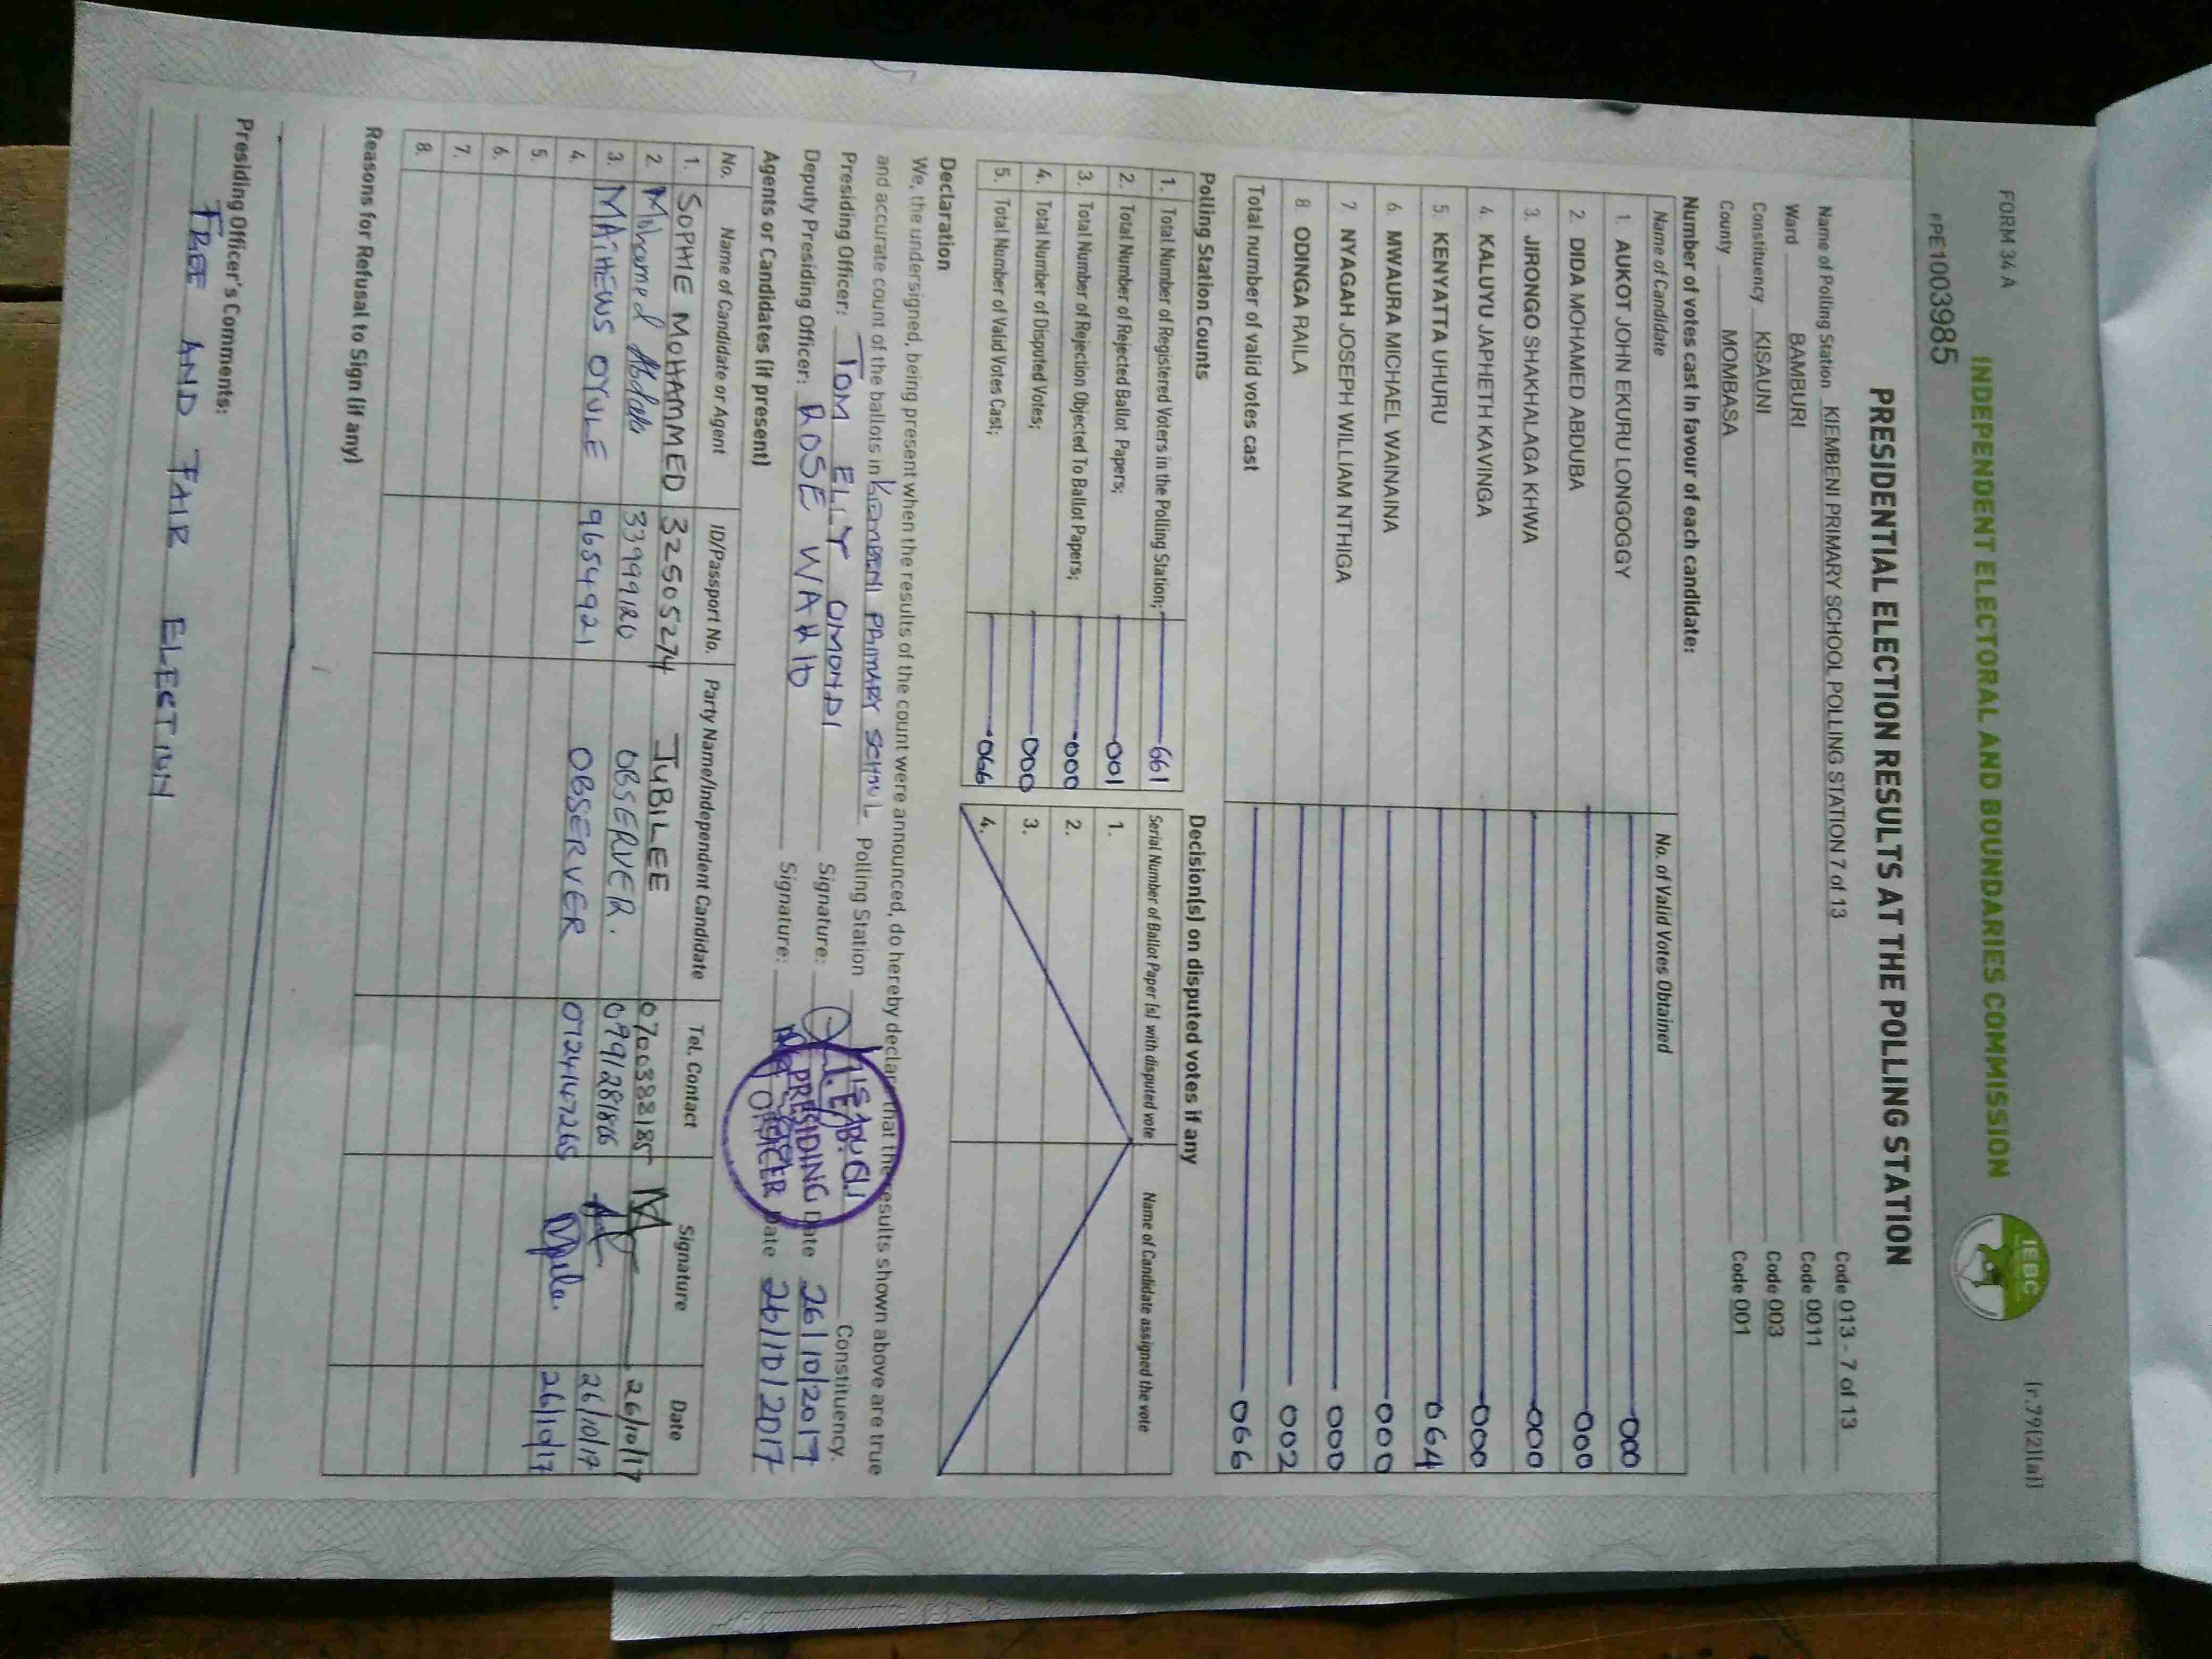 FORM 34 A
(r.79(2)(a))
INDEPENDENT ELECTORAL AND BOUNDARIES COMMISSION
IEBC
PPE1003985
PRESIDENTIAL ELECTION RESULTS AT THE POLLING STATION
Name of Polling Station KIEMBENI PRIMARY SCHOOL POLLING STATION 7 of 13 Code 013 - 7 of 13
Ward BAMBURI Code 0011
Constituency KISAUNI Code 003
County MOMBASA Code 001
Number of votes cast in favour of each candidate:
Name of Candidate No. of Valid Votes Obtained
1. AUKOT JOHN EKURU LONGOGGY 000
2. DIDA MOHAMED ABDUBA 000
3. JIRONGO SHAKHALAGA KHWA 000
4. KALUYU JAPHETH KAVINGA 000
5. KENYATTA UHURU 064
6. MWAURA MICHAEL WAINAINA 000
7. NYAGAH JOSEPH WILLIAM NTHIGA 000
8. ODINGA RAILA 002
Total number of valid votes cast 066
Polling Station Counts
1. Total Number of Registered Voters in the Polling Station; 661
2. Total Number of Rejected Ballot Papers; 001
3. Total Number of Rejection Objected To Ballot Papers; 000
4. Total Number of Disputed Votes; 000
5. Total Number of Valid Votes Cast; 066
Decision(s) on disputed votes if any
Serial Number of Ballot Paper (s) with disputed vote Name of Candidate assigned the vote
1.
2.
3.
4.
Declaration
We, the undersigned, being present when the results of the count were announced, do hereby declare that the results shown above are true
and accurate count of the ballots in KIEMBENI PRIMARY SCHOOL Polling Station KISAUNI Constituency.
Presiding Officer: TOM ELLY OMONDI Signature: Date 26/10/2017
Deputy Presiding Officer: ROSE WAHID Signature: Date 26/10/2017
PRESIDING
OFFICER
Agents or Candidates (if present)
No. Name of Candidate or Agent ID/Passport No. Party Name/Independent Candidate Tel. Contact Signature Date
1. SOPHIE MOHAMMED 32505274 JUBILEE 0700388185 26/10/17
2. Mohamed 33999120 OBSERVER. 0791281866 26/10/17
3. MATHEWS OYULE 96549921 OBSERVER 0724147265 26/10/17
4.
5.
6.
7.
8.
Reasons for Refusal to Sign (if any)
Presiding Officer's Comments:
FREE AND FAIR ELECTION